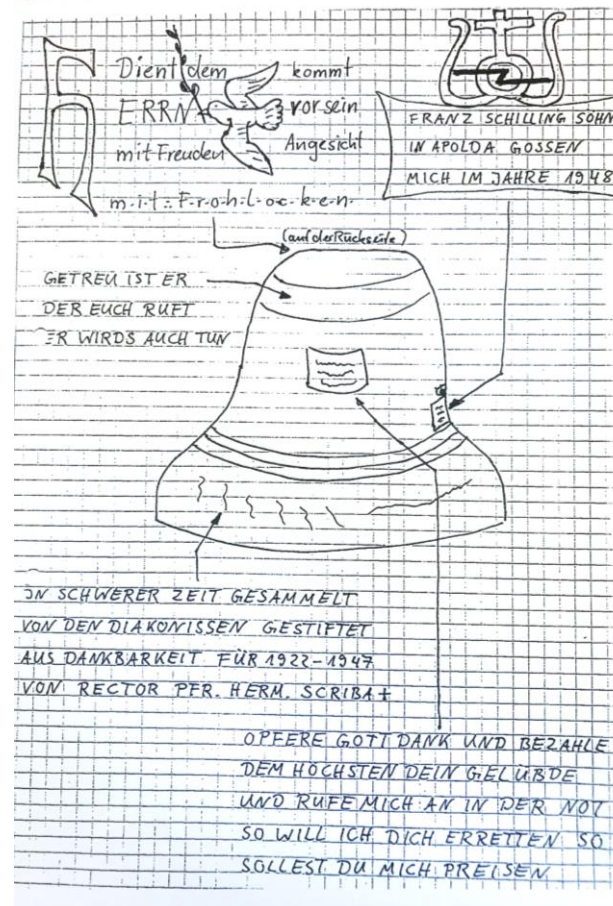 Dient dem kommt
HERRN + vor sein
mit Freuden Angesicht
m·i·t·:·F·r·o·h·l·o·c·k·e·n·
FRANZ SCHILLING SÖHN
IN APOLDA GOSSEN
MICH IM JAHRE 1948
(auf der Rückseite)
GETREU IST ER
DER EUCH RUFT
ER WIRDS AUCH TUN
IN SCHWERER ZEIT GESAMMELT
VON DEN DIAKONISSEN GESTIFTET
AUS DANKBARKEIT FÜR 1922-1947
VON RECTOR PFR. HERM. SCRIBA +
OPFERE GOTT DANK UND BEZAHLE
DEM HÖCHSTEN DEIN GELÜBDE
UND RUFE MICH AN IN DER NOT
SO WILL ICH DICH ERRETTEN SO
SOLLEST DU MICH PREISEN